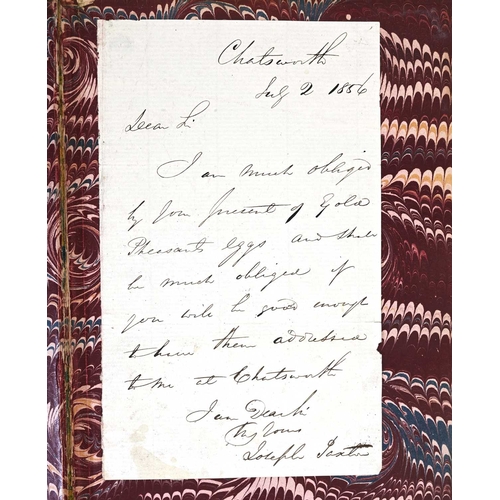 Chatsworth
July 2 1856
Dear Sir
I am much obliged
by your present of Gold
Pheasants eggs and shall
be much obliged if
you will be good enough
to have them addressed
to me at Chatsworth
I am Dear Sir
Yours
Joseph Paxton